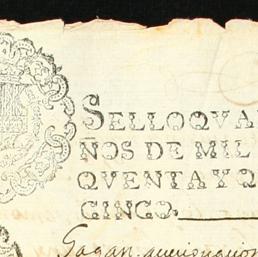 SELLOQVA
ÑOS DE MIL
QVENTAYQ
CINCO.